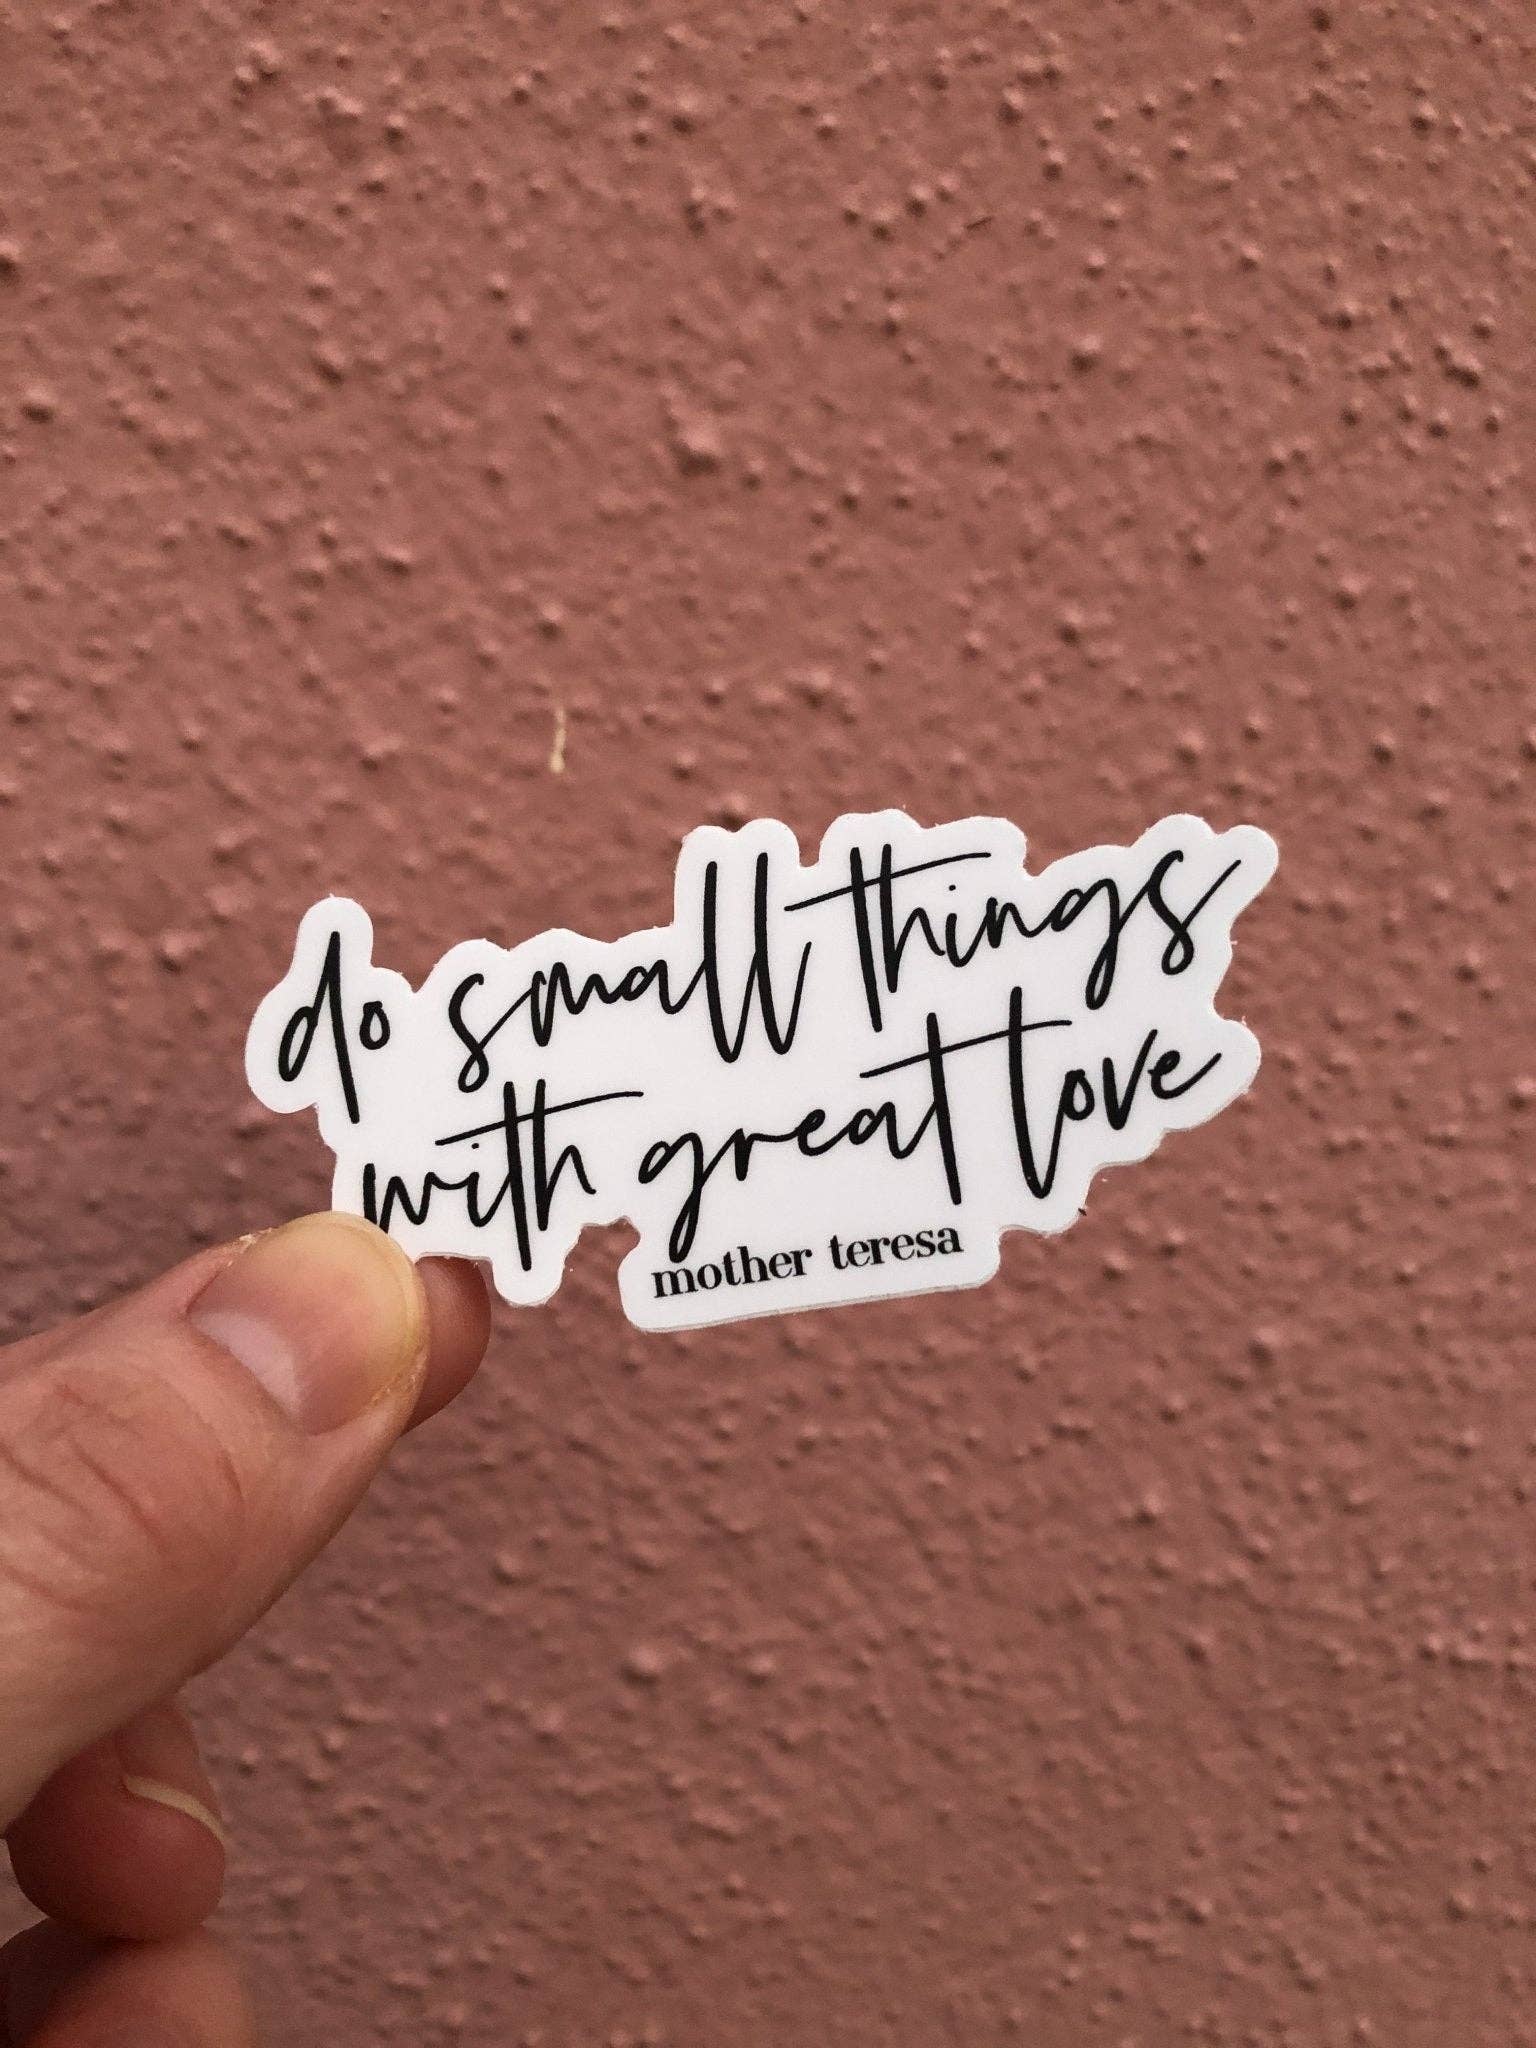 do small things
with great love
mother teresa